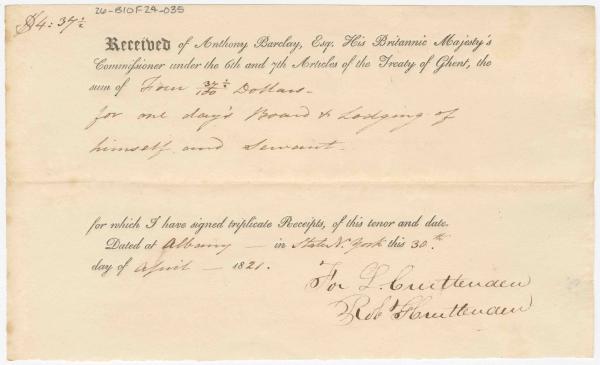 $4:37½
26-B10F24-035
Received of Anthony Barclay, Esq. His Britannic Majesty's
Commissioner under the 6th and 7th Articles of the Treaty of Ghent, the
sum of Four 37½/100 Dollars-
for one day's Board & Lodging of
himself and Servant-
for which I have signed triplicate Receipts, of this tenor and date.
Dated at Albany — in State N. York this 30th
day of April — 1821.
For L. Cruttenden
Robt Cruttenden